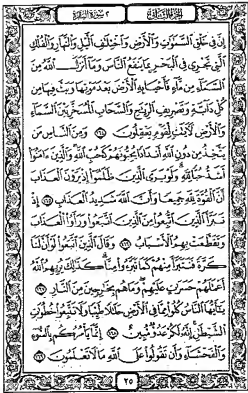 الجزء الثاني ٢ سورة البقرة
إِنَّ فِي خَلْقِ السَّمَٰوَٰتِ وَالْأَرْضِ وَاخْتِلَٰفِ الَّيْلِ وَالنَّهَارِ وَالْفُلْكِ
الَّتِي تَجْرِي فِي الْبَحْرِ بِمَا يَنفَعُ النَّاسَ وَمَا أَنزَلَ اللَّهُ مِنَ
السَّمَاءِ مِن مَّاءٍ فَأَحْيَا بِهِ الْأَرْضَ بَعْدَ مَوْتِهَا وَبَثَّ فِيهَا مِن
كُلِّ دَابَّةٍ وَتَصْرِيفِ الرِّيَٰحِ وَالسَّحَابِ الْمُسَخَّرِ بَيْنَ السَّمَاءِ
وَالْأَرْضِ لَءَايَٰتٍ لِّقَوْمٍ يَعْقِلُونَ ١٦٤ وَمِنَ النَّاسِ مَن
يَتَّخِذُ مِن دُونِ اللَّهِ أَندَادًا يُحِبُّونَهُمْ كَحُبِّ اللَّهِ وَالَّذِينَ ءَامَنُوا
أَشَدُّ حُبًّا لِّلَّهِ وَلَوْ يَرَى الَّذِينَ ظَلَمُوا إِذْ يَرَوْنَ الْعَذَابَ
أَنَّ الْقُوَّةَ لِلَّهِ جَمِيعًا وَأَنَّ اللَّهَ شَدِيدُ الْعَذَابِ ١٦٥ إِذْ
تَبَرَّأَ الَّذِينَ اتُّبِعُوا مِنَ الَّذِينَ اتَّبَعُوا وَرَأَوُا الْعَذَابَ
وَتَقَطَّعَتْ بِهِمُ الْأَسْبَابُ ١٦٦ وَقَالَ الَّذِينَ اتَّبَعُوا لَوْ أَنَّ لَنَا
كَرَّةً فَنَتَبَرَّأَ مِنْهُمْ كَمَا تَبَرَّءُوا مِنَّا كَذَٰلِكَ يُرِيهِمُ اللَّهُ
أَعْمَٰلَهُمْ حَسَرَٰتٍ عَلَيْهِمْ وَمَا هُم بِخَٰرِجِينَ مِنَ النَّارِ ١٦٧
يَٰأَيُّهَا النَّاسُ كُلُوا مِمَّا فِي الْأَرْضِ حَلَٰلًا طَيِّبًا وَلَا تَتَّبِعُوا خُطُوَٰتِ
الشَّيْطَٰنِ إِنَّهُ لَكُمْ عَدُوٌّ مُّبِينٌ ١٦٨ إِنَّمَا يَأْمُرُكُم بِالسُّوءِ
وَالْفَحْشَاءِ وَأَن تَقُولُوا عَلَى اللَّهِ مَا لَا تَعْلَمُونَ ١٦٩
٢٥